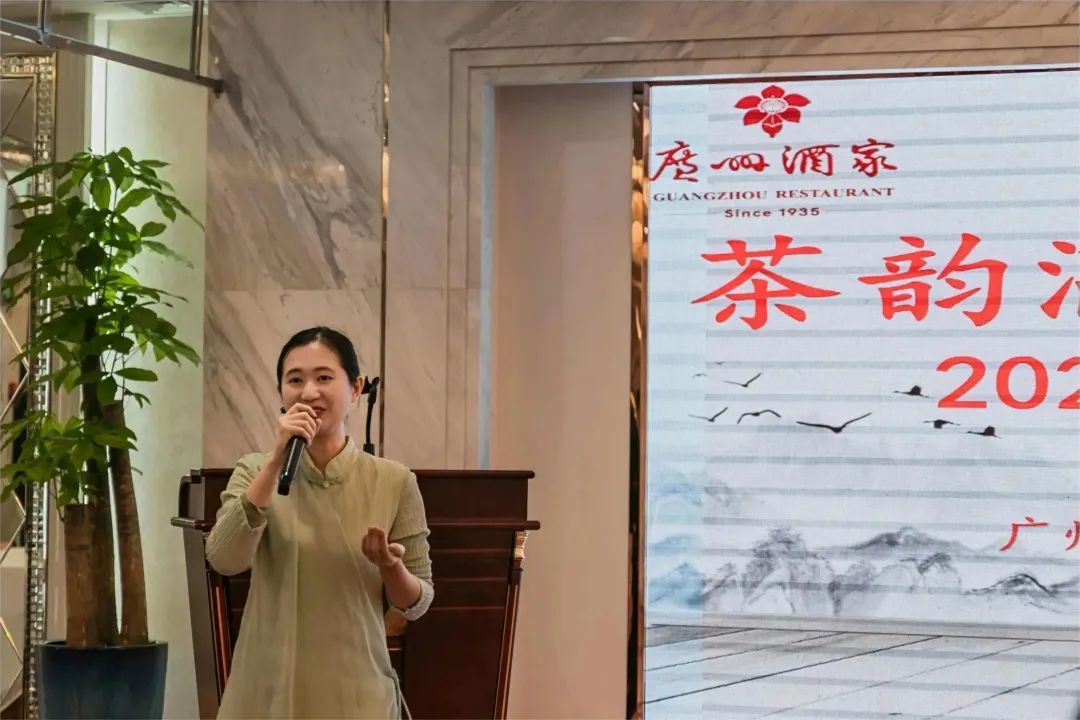 廣州酒家
GUANGZHOU RESTAURANT
Since 1935
茶韵
202
广